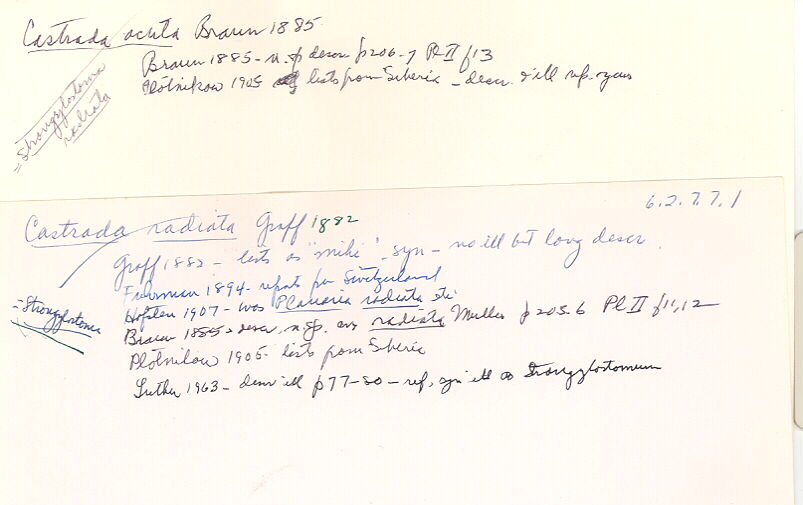 Castrada acuta Braun 1885
Braun 1885 - n. sp descr p206-7 Pl II f13
Plotnikow 1905 lists from Siberia - descr. & ill rep. organs
= Strongylostoma
radiata
6.2.7.7.1
Castrada radiata Graff 1882
Graff 1882 - lists as "mihi" - syn - no ill but long descr.
Fuhrman 1894 - reports for Switzerland
= Strongylostoma
Hofsten 1907 - was Planaria radiata etc
Braun 1885 - descr. n. sp. as radiata Muller p205-6 Pl II f11,12
Plotnikow 1905 - lists from Siberia
Luther 1963 - descr ill p77-80 - ref, syn ill as Strongylostomum